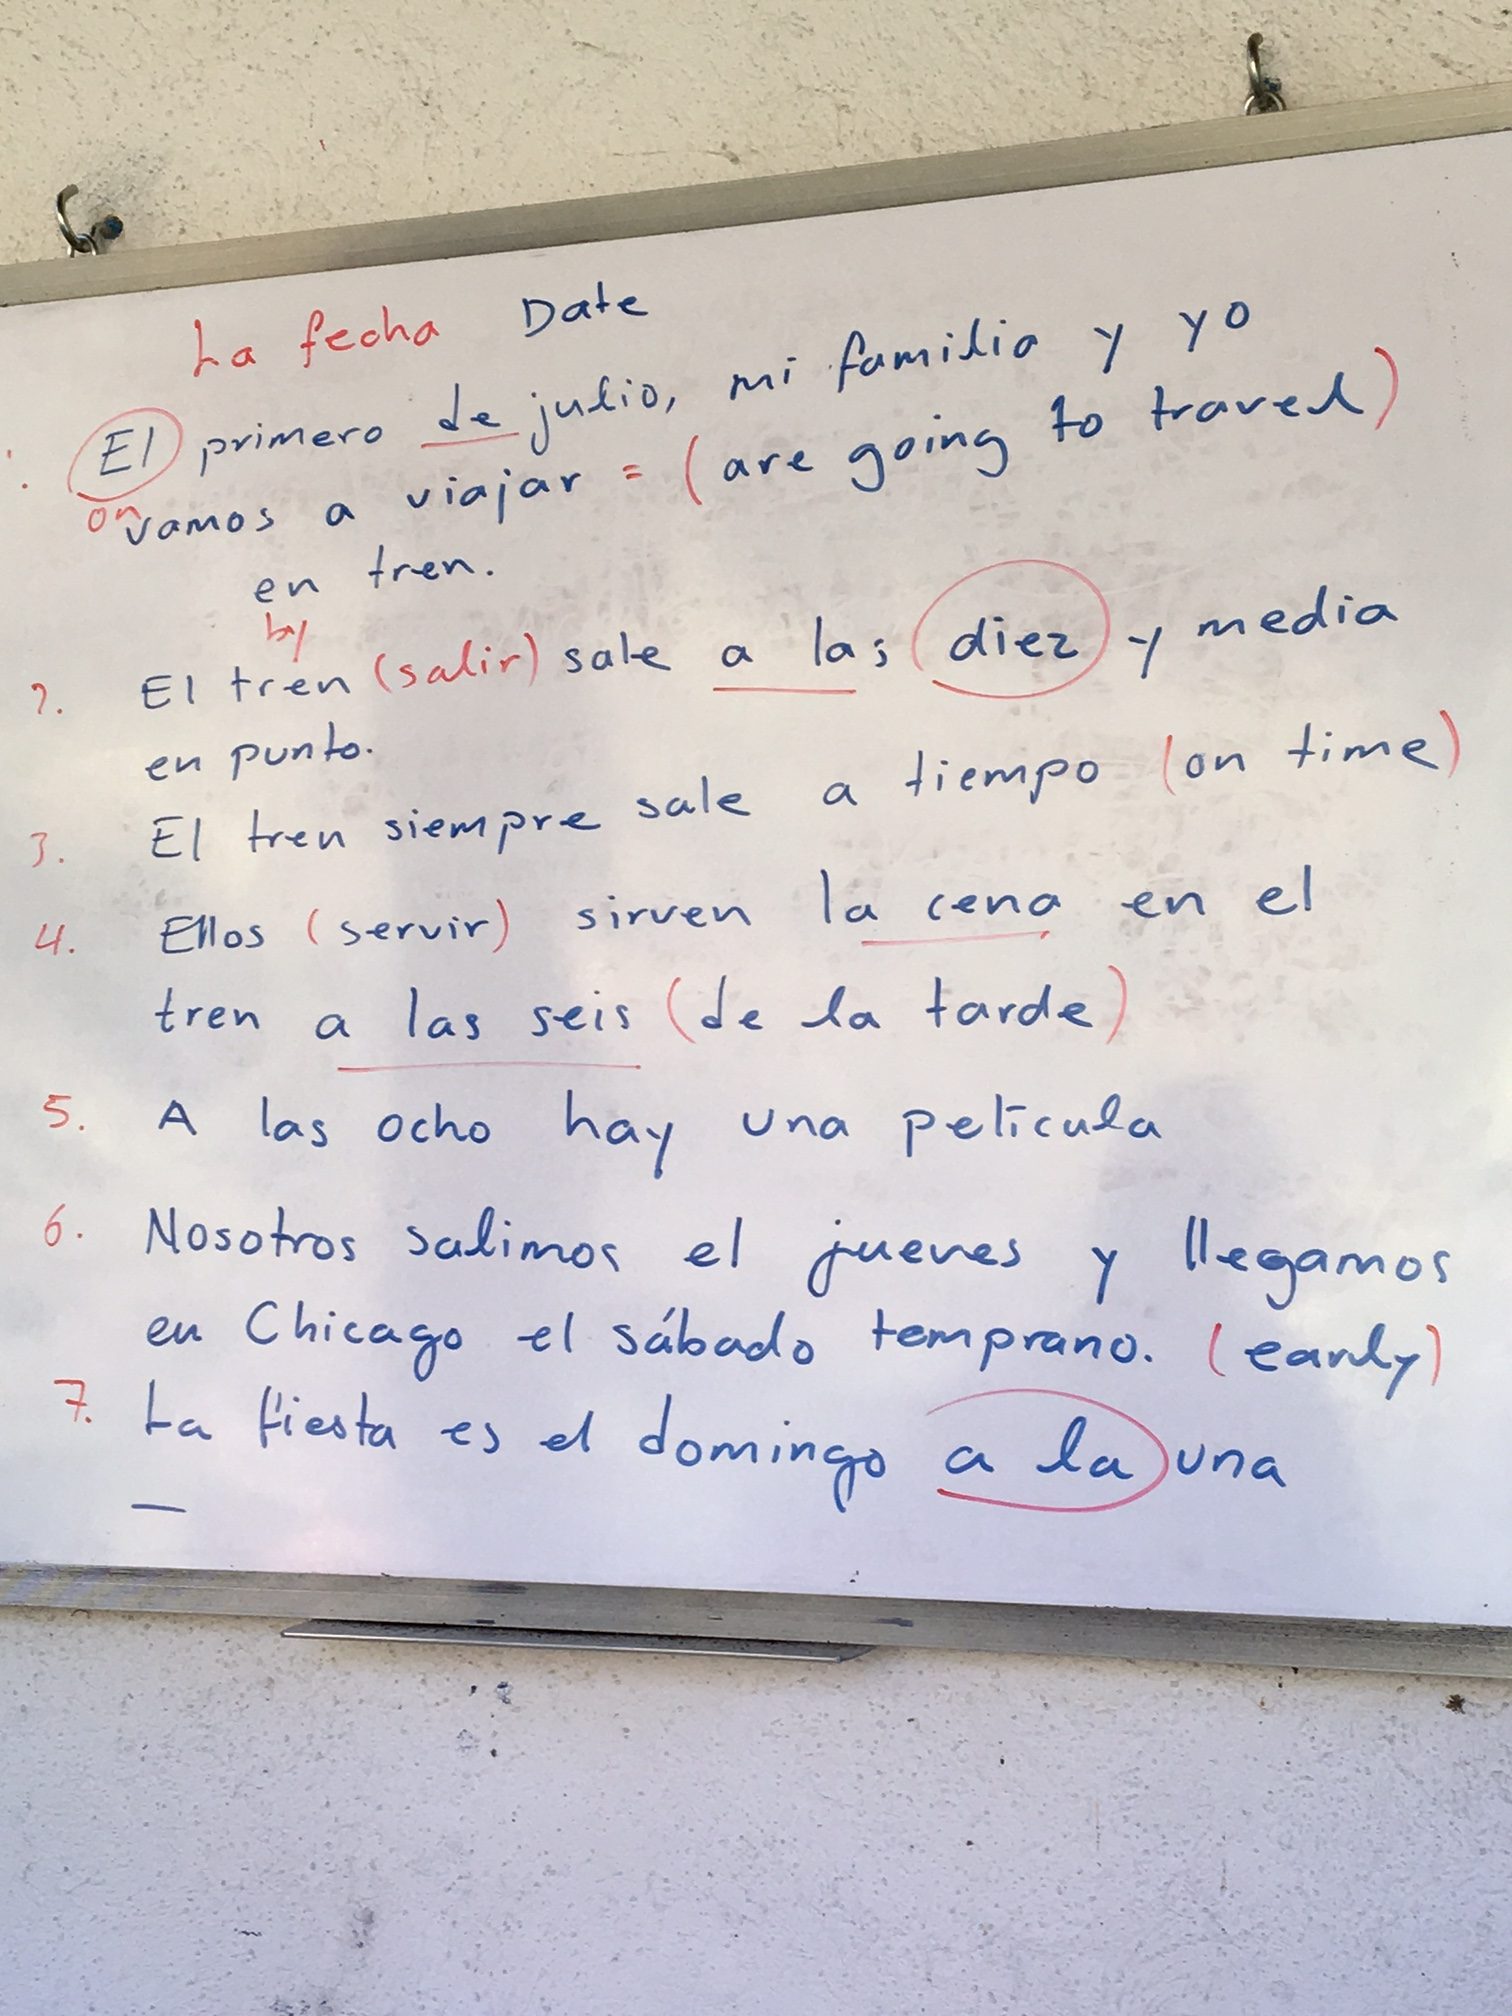 La fecha Date
El primero de julio, mi familia y yo
on vamos a viajar = (are going to travel)
en tren.
by
2. El tren (salir) sale a las diez y media
en punto.
3. El tren siempre sale a tiempo (on time)
4. Ellos (servir) sirven la cena en el
tren a las seis (de la tarde)
5. A las ocho hay una película
6. Nosotros salimos el jueves y llegamos
en Chicago el sábado temprano. (early)
7. La fiesta es el domingo a la una